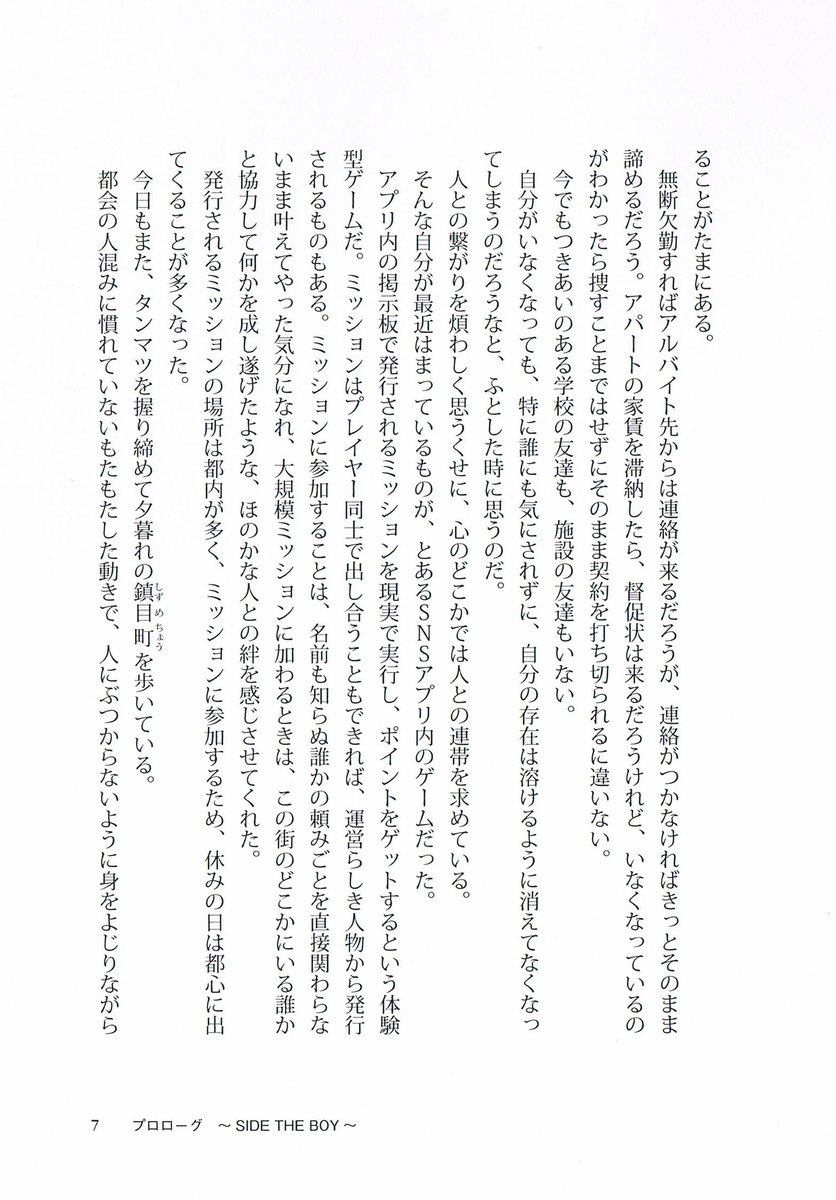 ることがたまにある。
　無断欠勤すればアルバイト先からは連絡が来るだろうが、連絡がつかなければきっとそのまま
諦めるだろう。アパートの家賃を滞納したら、督促状は来るだろうけれど、いなくなっているの
がわかったら捜すことまではせずにそのまま契約を打ち切られるに違いない。
　今でもつきあいのある学校の友達も、施設の友達もいない。
　自分がいなくなっても、特に誰にも気にされずに、自分の存在は溶けるように消えてなくなっ
てしまうのだろうなと、ふとした時に思うのだ。
　人との繋がりを煩わしく思うくせに、心のどこかでは人との連帯を求めている。
　そんな自分が最近はまっているものが、とあるSNSアプリ内のゲームだった。
　アプリ内の掲示板で発行されるミッションを現実で実行し、ポイントをゲットするという体験
型ゲームだ。ミッションはプレイヤー同士で出し合うこともできれば、運営らしき人物から発行
されるものもある。ミッションに参加することは、名前も知らぬ誰かの頼みごとを直接関わらな
いまま叶えてやった気分になれ、大規模ミッションに加わるときは、この街のどこかにいる誰か
と協力して何かを成し遂げたような、ほのかな人との絆を感じさせてくれた。
　発行されるミッションの場所は都内が多く、ミッションに参加するため、休みの日は都心に出
てくることが多くなった。
　今日もまた、タンマツを握り締めて夕暮れの鎮目町しずめちょうを歩いている。
　都会の人混みに慣れていないもたもたした動きで、人にぶつからないように身をよじりながら
7　プロローグ　～SIDE THE BOY～